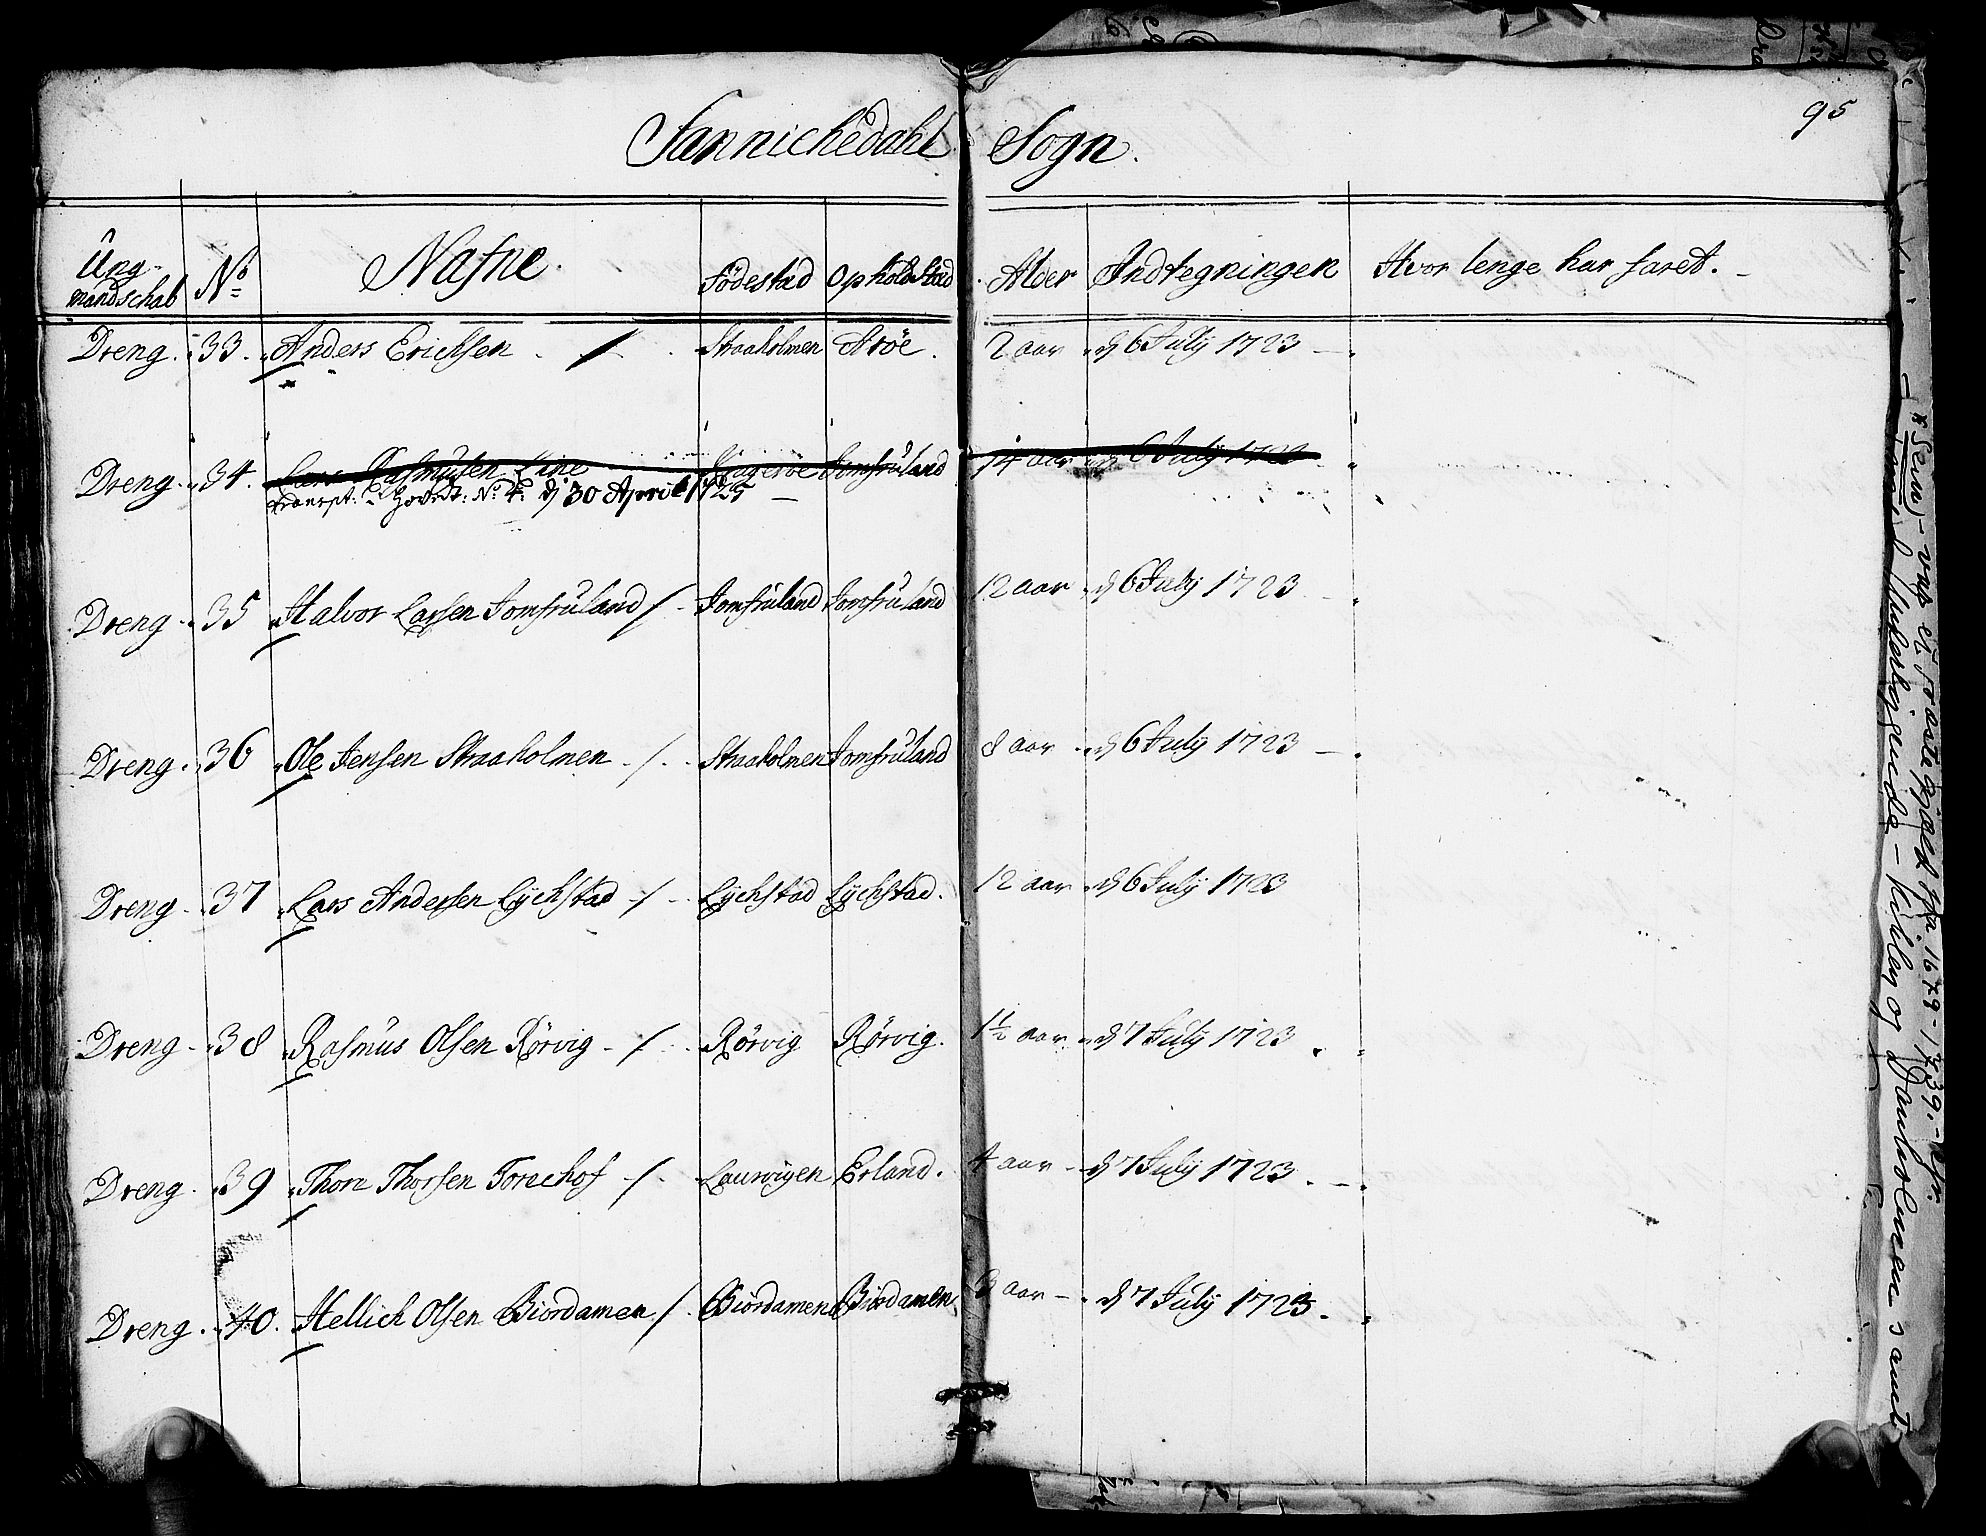 95
Sannichedahl Sogn.
Ung-
mandschab No Nafne. Födestad opholdstad Alder Indtegningen Hvor lenge har faret.
Dreng. 33. Anders Erichsen Straaholmen Aröe. 2 aar d 6 July 1723
Dreng 34. Lars Rasmusen Line Jomfruland 14 aar d 6 July 1723
No 4 d 30 April 1725
Dreng 35 Halvor Larsen Jomfruland Jomfruland Jomfruland 12 aar d 6 July 1723
Dreng. 36 Ole Jensen Straaholmen Straaholmen Jomfruland 8 aar d 6 July 1723
Dreng 37 Lars Andersen Lychstad Lychstad Lychstad. 12 aar d 6 July 1723
Dreng 38 Rasmus Olsen Rörvig Rörvig Rörvig. 1½ aar d 7 July 1723
Dreng 39 Thore Thorsen Torechof Laurvigen Erland. 4 aar d 7 July 1723
Dreng. 40. Hellich Olsen Biordamen Biordamen Biordamen 3 aar d 7 July 1723.